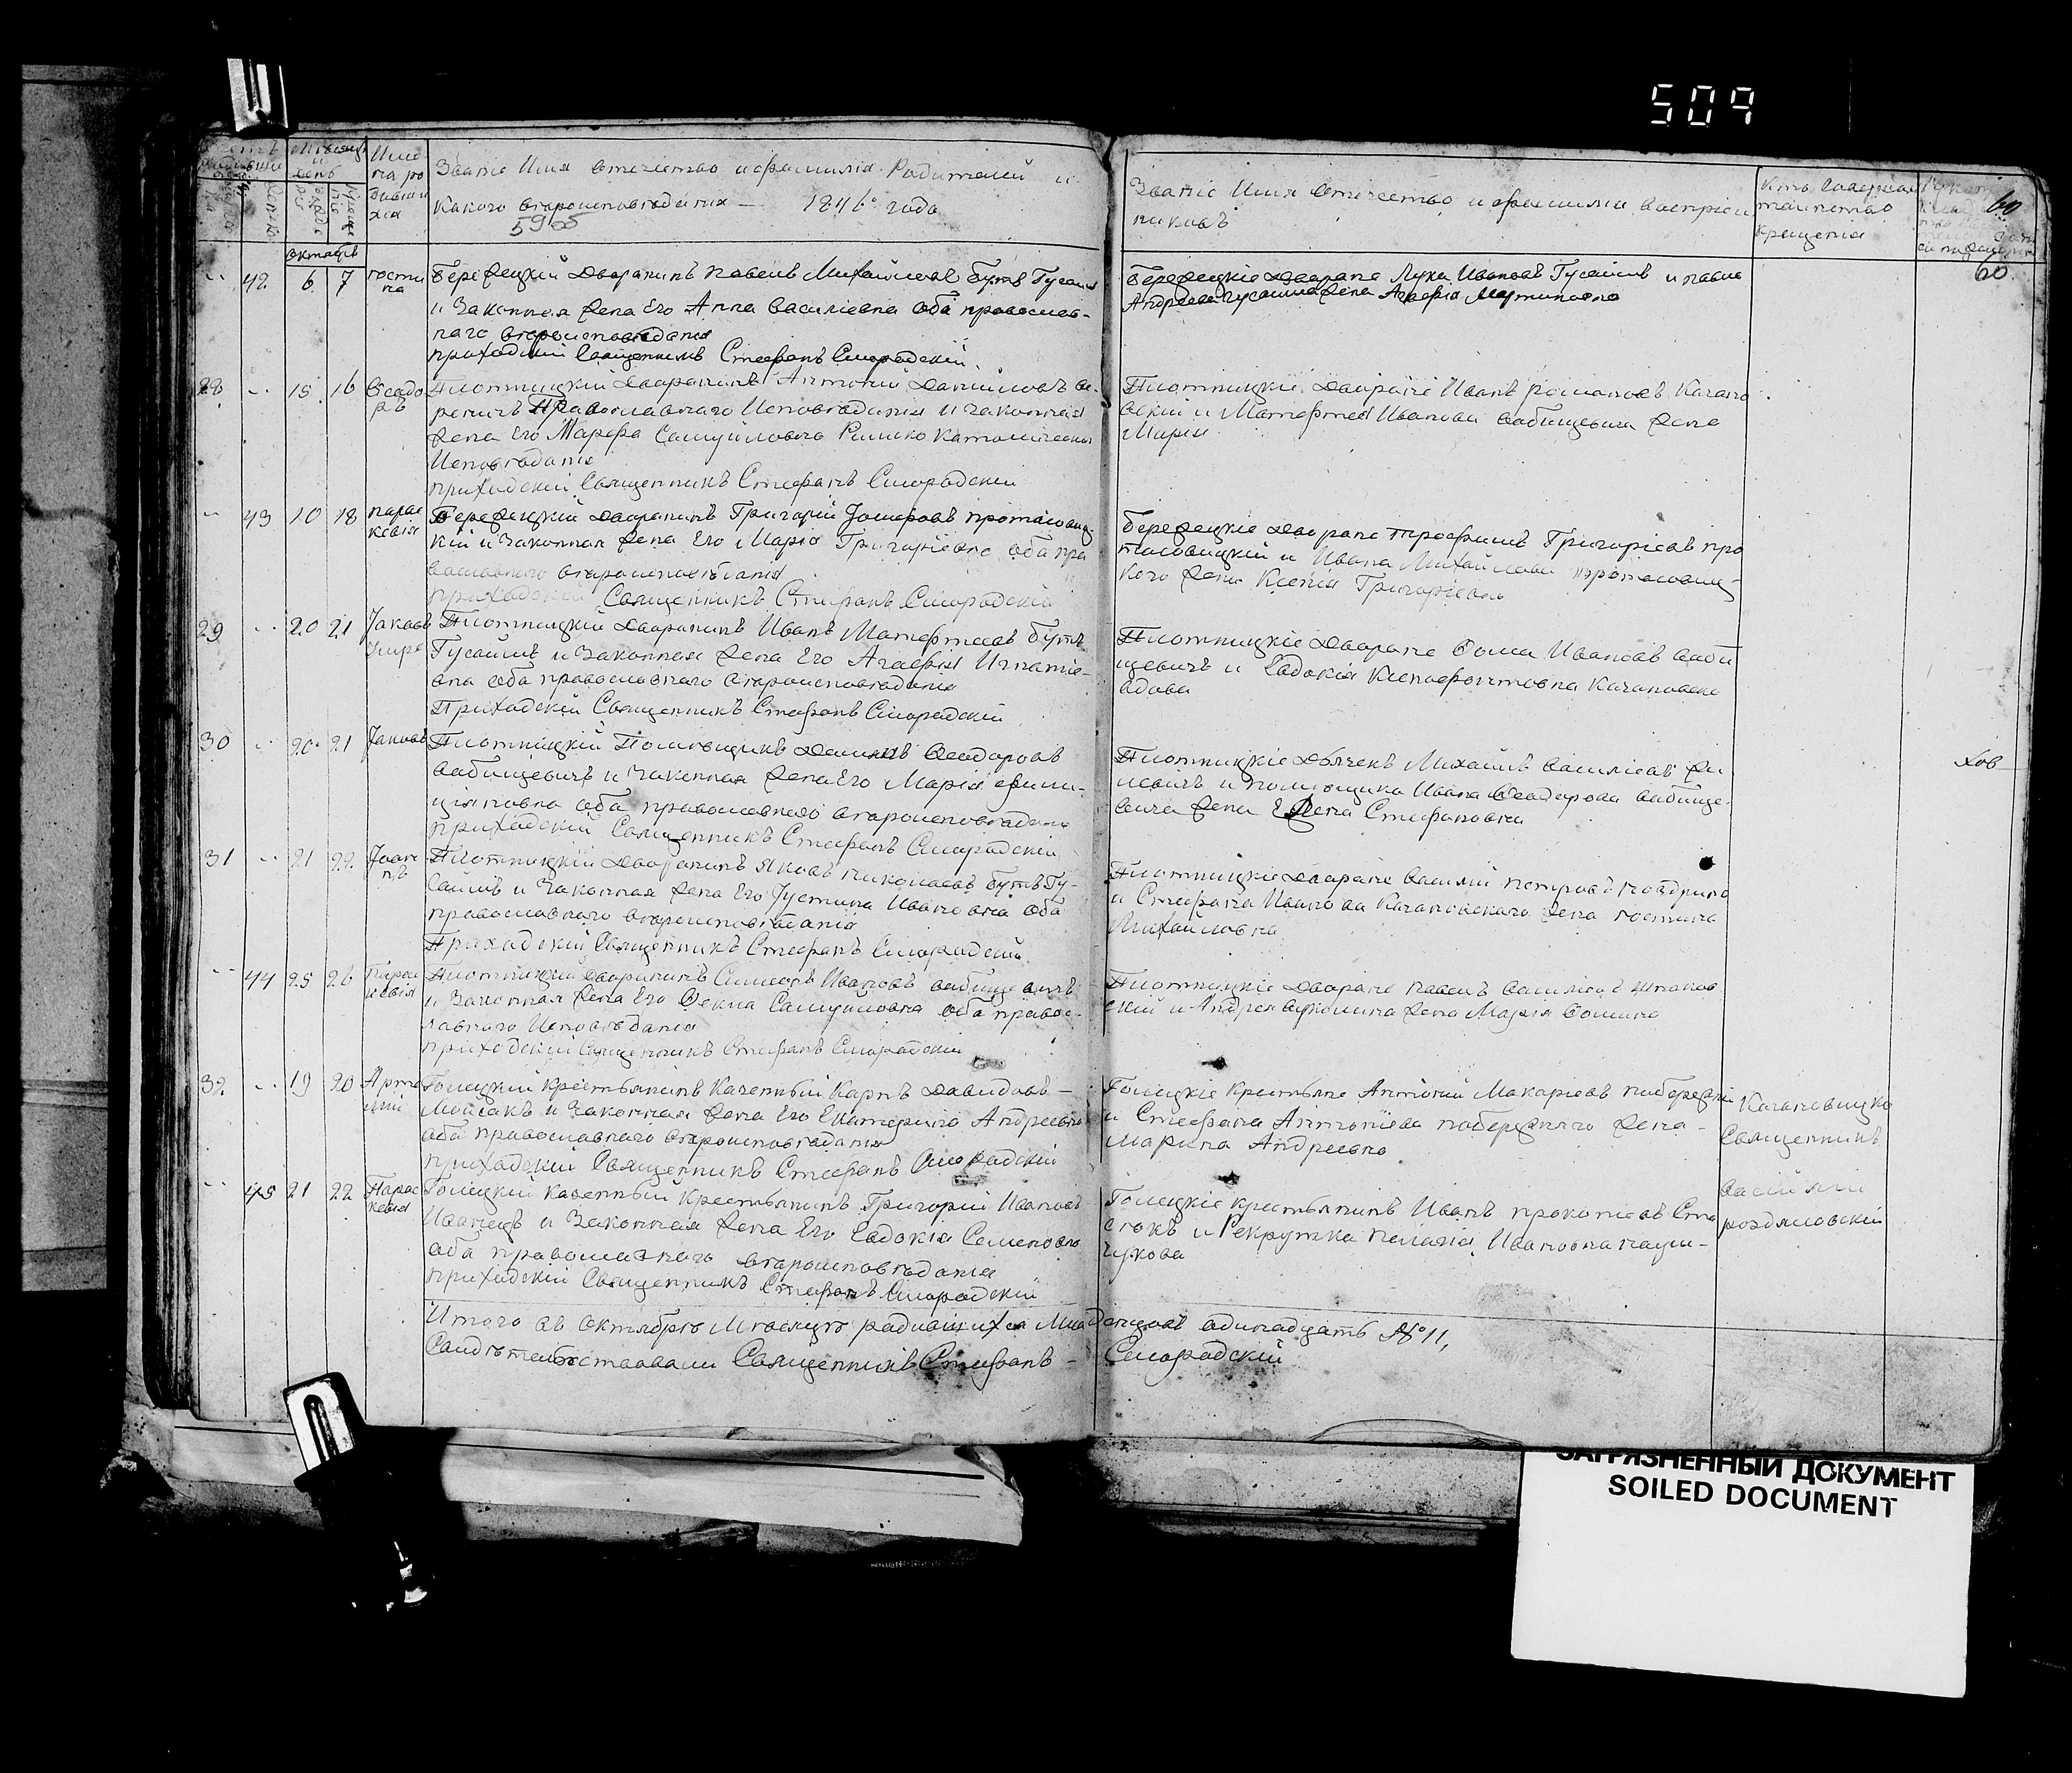 509
Имена родивших
Званіе Имя Отчество и фамилія Родителей и
Какого вѣроисповѣданія — 1846 года
Званіе Имя Отчество и фамилія воспріем
никовъ
Кто Совершал
таинство
крещенія
60
октябрь
60
42 6 7
Бережецкій Дворянинъ Павелъ Михайловъ Бутъ Гусаимъ
и Законная Жена Его Анна Василіевна оба православ-
наго вѣроисповѣданія
приходскій Священникъ Стефанъ Смородскій
Бережецкіе Дворяне Лука Ивановъ Гусаимъ и павла
Андреева Гусаима Жена Агафія Мартиновна
28 15 16 Ѳеодо
ръ
Плотницкій Дворянинъ Антоній Даниловъ Ве-
реничъ Православнаго Исповѣданія и законная
Жена Его Марфа Самуйловна Римско Католическаго
Исповѣданія
приходскій Священникъ Стефанъ Смородскій
Плотницкіе Дворяне Иванъ романовъ Качано
вскій и Матефтея Иванова Бабицевича Жена
Марія
43 10 18 парас
кевія
Бережецкій Дворянинъ Григорій Іосифовъ протасовиц-
кій и Законная Жена Его Марія Григоріевна оба пра
вославнаго вѣроисповѣданія
приходскій Священникъ Стефанъ Смородскій
Бережецкіе Дворяне Трофимъ Григоріевъ про
тасовицкій и Ивана Михайлова протасовиц-
кого Жена Ксенія Григоріевна
29 20 21 Іаковъ
Плотницкій Дворянинъ Иванъ Матефтеевъ Бутъ
Гусаимъ и Законная Жена Его Агафія Игнатіе-
вна оба православнаго вѣроисповѣданія
Приходскій Священникъ Стефанъ Смородскій
Плотницкіе Дворяне Ѳома Ивановъ Баби
цевичъ и Евдокія Ксенофонтовна Качановска
вдова
30 20 21 Іаковъ
Плотницкій Помѣщикъ Даниилъ Ѳеодоровъ
Бабицевичъ и Законная Жена Его Марія
оба православнаго вѣроисповѣданія
приходскій Священникъ Стефанъ Смородскій
Плотницкіе Дьячекъ Михаилъ Василіевъ
и помѣщика Ивана Ѳеодорова Бабице-
вича Жена Елена Стефановна
31 21 22 Іоан
нъ
Плотницкій Дворянинъ Яковъ николаевъ Бутъ Гу-
саимъ и Законная Жена Его Іустина Ивановна оба
православнаго вѣроисповѣданія
Приходскій Священникъ Стефанъ Смородскій
Плотницкіе Дворяне Василій петровъ
и Стефана Иванова Качановскаго Жена
Михайловна
44 25 26 Парас
кевія
Плотницкій Дворянинъ Симеонъ Ивановъ Бабицевичъ
и Законная Жена Его Ѳекла Самуиловна оба правос-
лавнаго Исповѣданія
приходскій Священникъ Стефанъ Смородскій
Плотницкіе Дворяне павелъ Василіевъ
скій и Андрея Жена Марія Ѳомина
32 19 20 Арте
мій
Голецкій крестьянинъ Казенный Карпъ Давидовъ —
Мойсакъ и Законная Жена Его Екатерина Андреевна
оба православнаго вѣроисповѣданія
приходскій Священникъ Стефанъ Смородскій
Голецкіе крестьяне Антоній Макаріевъ побережній
и Стефана Антоніева побережнаго Жена —
Марина Андреевна
Качановицкій
Священникъ
45 21 22 Парас
кевія
Голецкій казенный Крестьянинъ Григорій Ивановъ
Иванецъ и Законная Жена Его Евдокія Семеновна
оба православнаго вѣроисповѣданія
приходскій Священникъ Стефанъ Смородскій
Голецкіе крестьянинъ Иванъ прокопіевъ
и Рекрутка пелагія Ивановна
Василій
Итого въ Октябрѣ Мѣсяцѣ родившихся Младенцовъ одинадцать №11,
Свидѣтельствовали Священникъ Стефанъ — Смородскій
ЗАГРЯЗНЕННЫЙ ДОКУМЕНТ
SOILED DOCUMENT